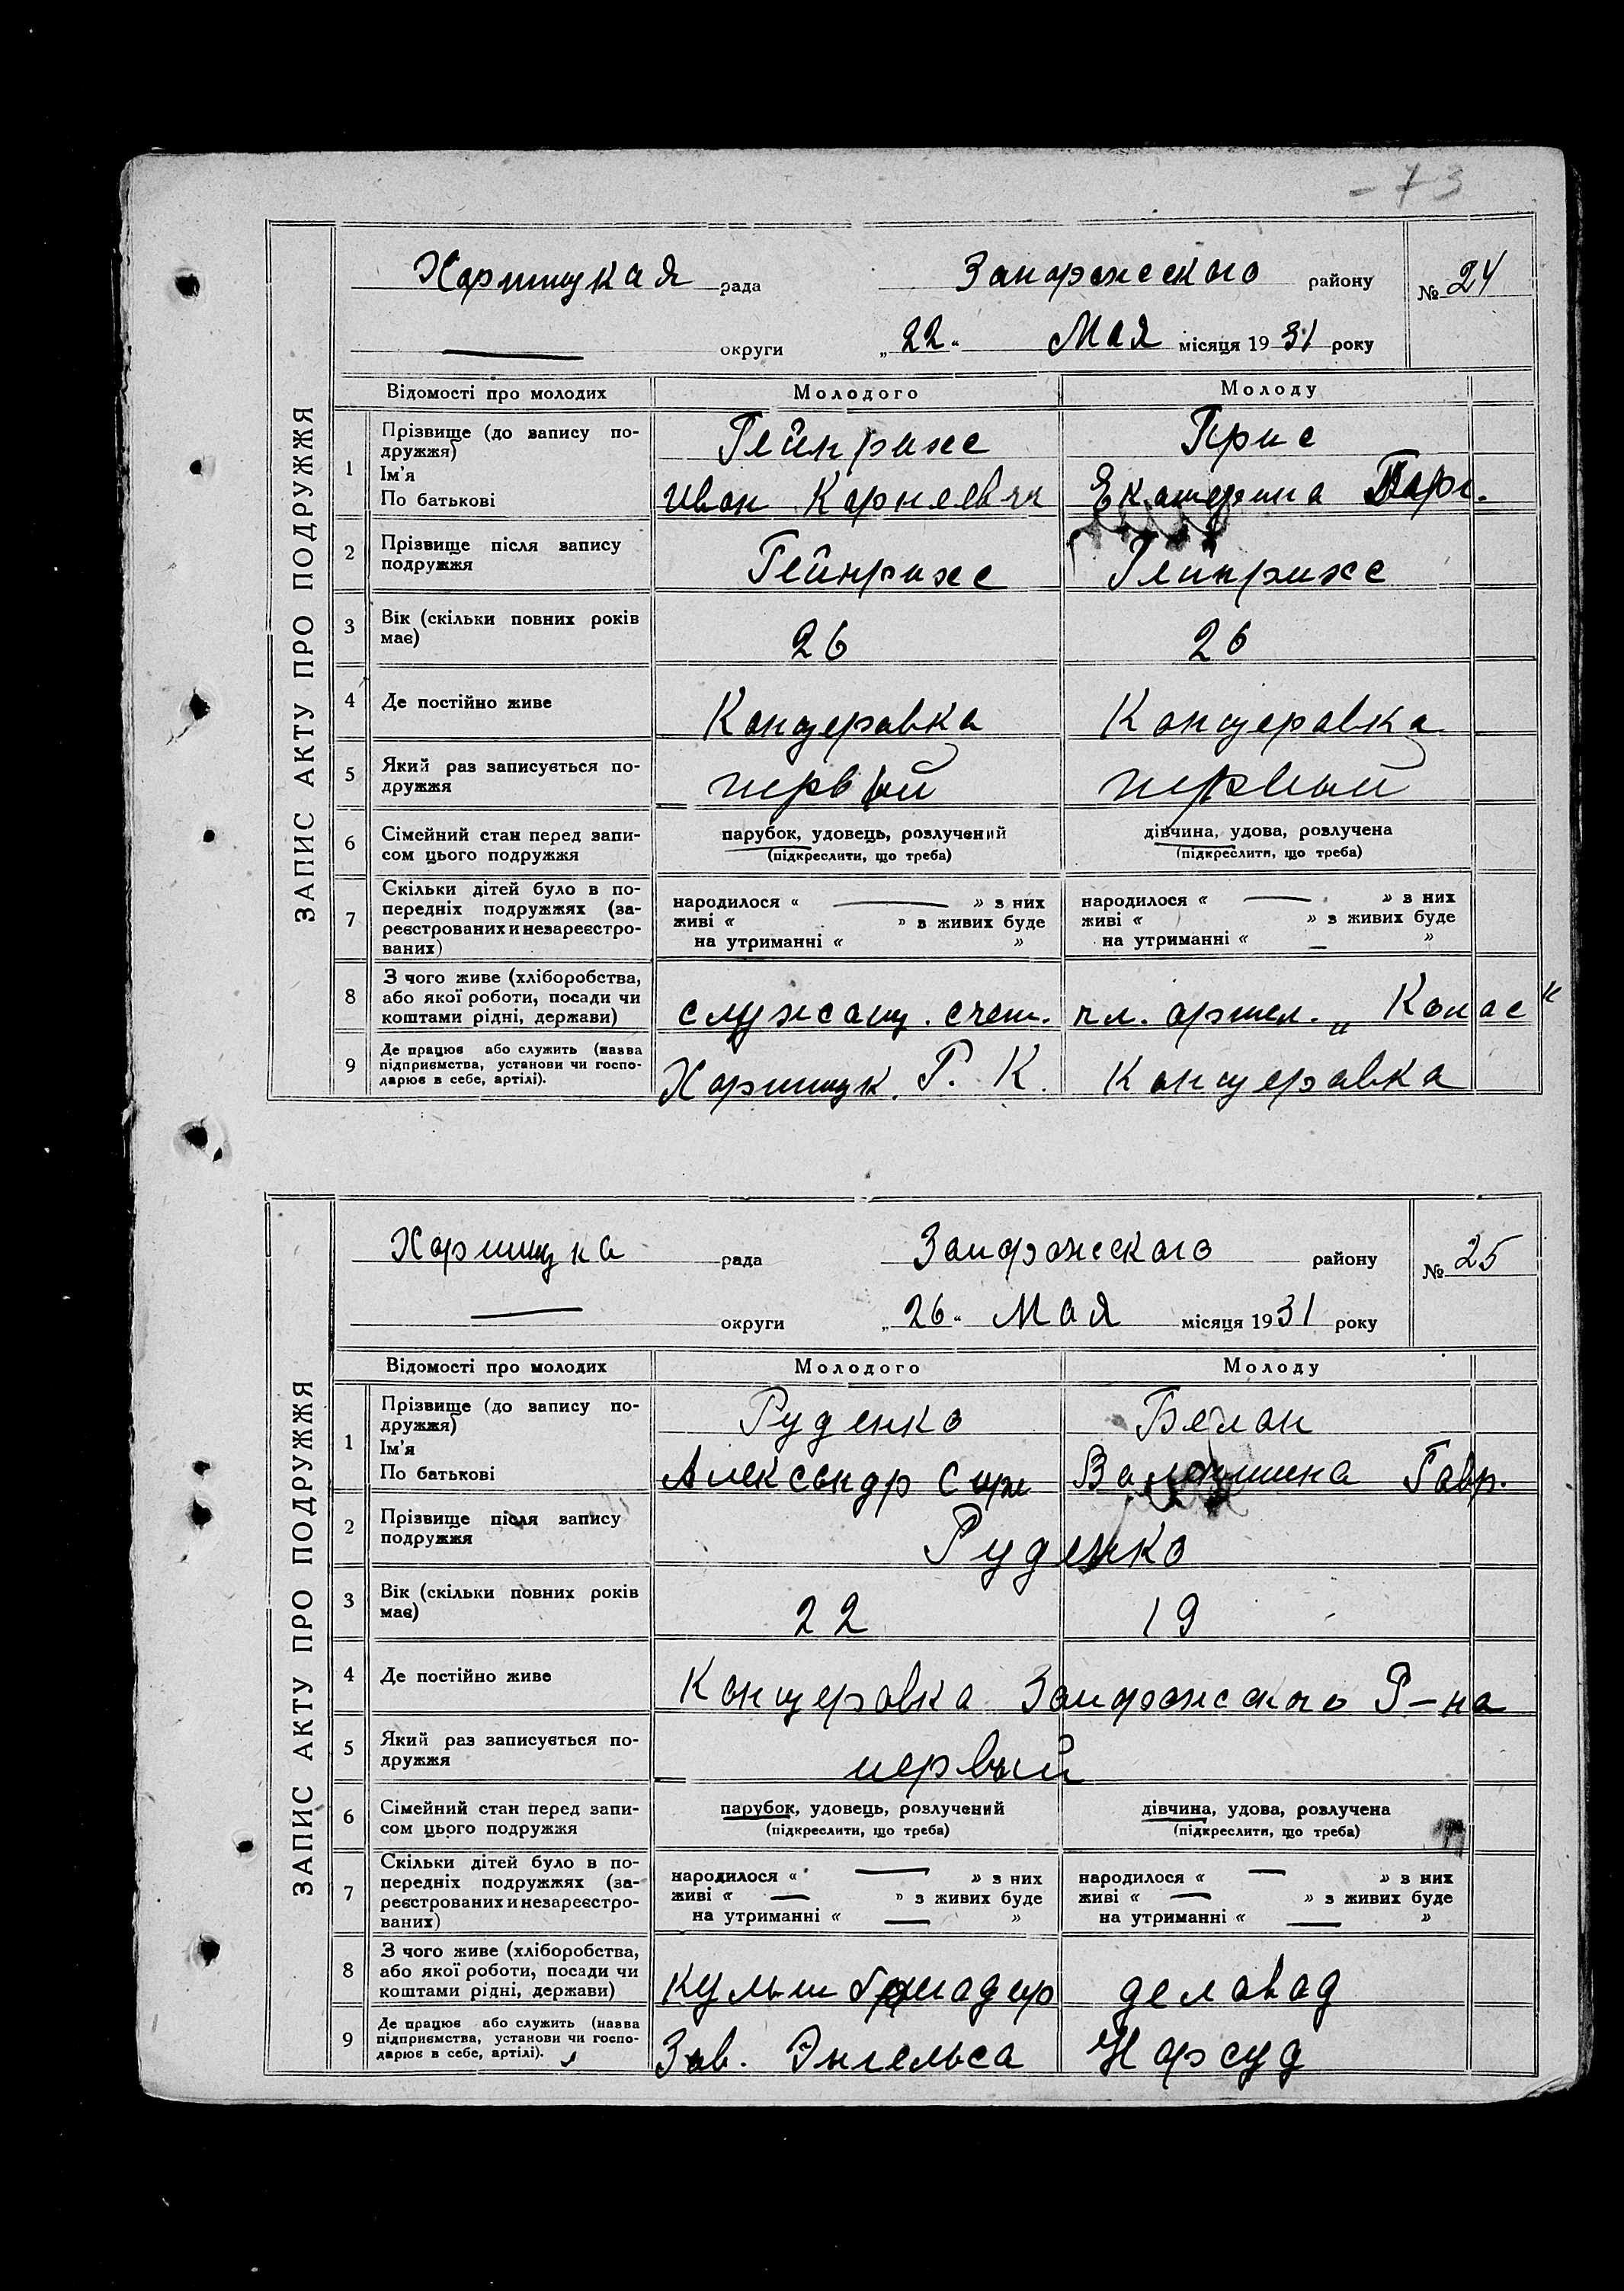 - 73
ЗАПИС АКТУ ПРО ПОДРУЖЖЯ
Хортицкая рада Запорожского району № 24
округи „22“ Мая місяця 1931 року
Відомості про молодих Молодого Молоду
1 Прізвище (до запису подружжя) Гейнрихс Крис
Ім'я
По батькові Иван Корнеевич Екатерина
2 Прізвище після запису подружжя Гейнрихс Гейнрихс
3 Вік (скільки повних років має) 26 26
4 Де постійно живе Канцеровка Канцеровка
5 Який раз записується подружжя первый первый
6 Сімейний стан перед записом цього подружжя парубок, удовець, розлучений дівчина, удова, розлучена
(підкреслити, що треба) (підкреслити, що треба)
7 Скільки дітей було в попередніх подружжях (зареєстрованих и незареєстрованих) народилося « — » з них народилося « — » з них
живі « » з живих буде живі « » з живих буде
на утриманні « » на утриманні « — »
8 З чого живе (хліборобства, або якої роботи, посади чи коштами рідні, держави) служащ. счет. чл. артел. „Колас“
9 Де працює або служить (назва підприємства, установи чи господарює в себе, артілі). Хортицк. Р. К. Канцеровка
ЗАПИС АКТУ ПРО ПОДРУЖЖЯ
Хортицка рада Запорожского району № 25
округи „26“ Мая місяця 1931 року
Відомості про молодих Молодого Молоду
1 Прізвище (до запису подружжя) Руденко Белан
Ім'я
По батькові Александр Валентина Гавр.
2 Прізвище після запису подружжя Руденко
3 Вік (скільки повних років має) 22 19
4 Де постійно живе Канцеровка Запорожского Р-на
5 Який раз записується подружжя первый
6 Сімейний стан перед записом цього подружжя парубок, удовець, розлучений дівчина, удова, розлучена
(підкреслити, що треба) (підкреслити, що треба)
7 Скільки дітей було в попередніх подружжях (зареєстрованих и незареєстрованих) народилося « — » з них народилося « — » з них
живі « — » з живих буде живі « — » з живих буде
на утриманні « — » на утриманні « — »
8 З чого живе (хліборобства, або якої роботи, посади чи коштами рідні, держави) культ бригадир деловод
9 Де працює або служить (назва підприємства, установи чи господарює в себе, артілі). Зав. Энгельса Нарсуд